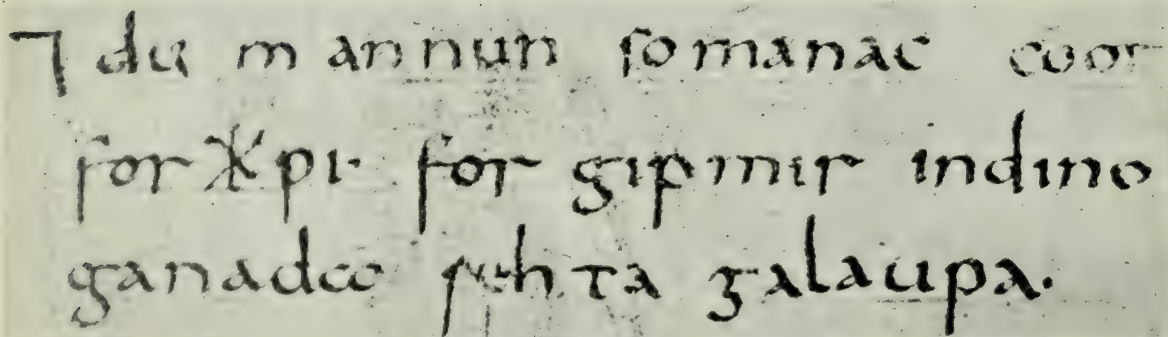 ⁊ du mannun somanac coot
forᚼpi· for gipmir indino
ganada rehta galaupa.